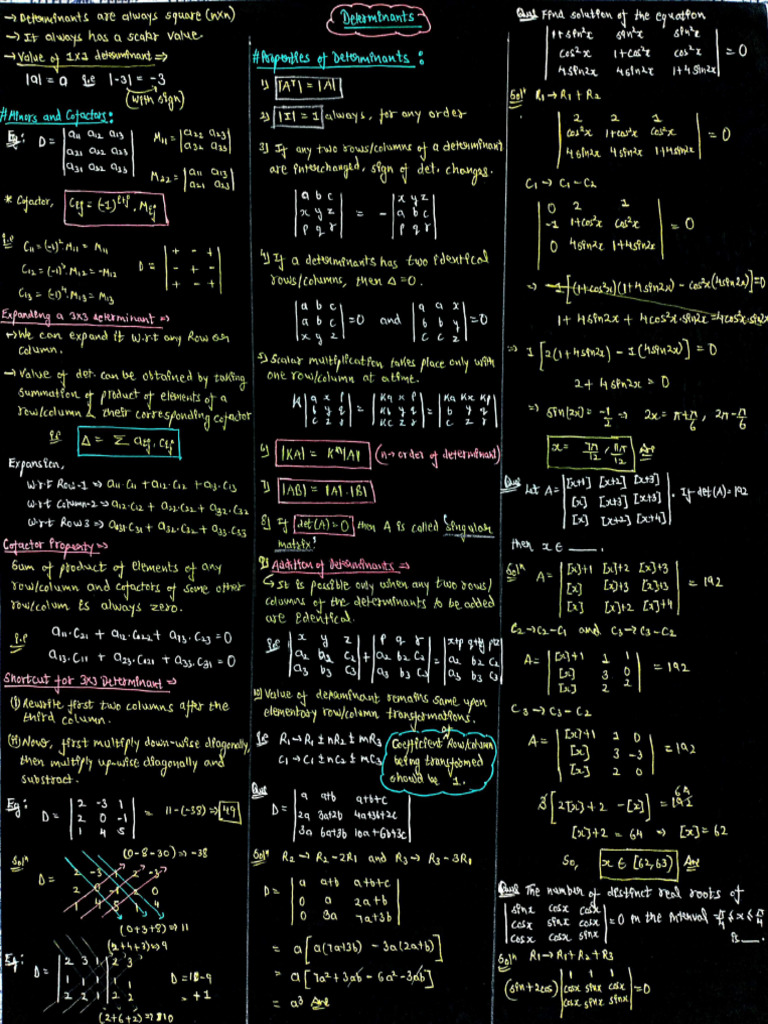 Determinants
→ Determinants are always square (n×n)
→ It always has a scalar value.
→ Value of 1×1 determinant ⇒
|a| = a i.e |-3| = -3
(with sign)
# Minors and Cofactors:
Eg: D = |a11 a12 a13|
|a21 a22 a23|
M11 = |a22 a23|
|a32 a33|
M22 =
* Cofactor, Cij = (-1)^(i+j) . Mij
i.e C11 = (-1)². M11 = M11
C12 = (-1)³. M12 = -M12
C13 = (-1)⁴. M13 = M13
D = |+ - +|
|- + -|
|+ - +|
Expanding a 3x3 determinant ⇒
→ We can expand it w.r.t any Row or
column.
→ Value of det. can be obtained by taking
summation of product of elements of a
row/column & their corresponding cofactor
i.e Δ = Σ aij . cij
Expansion,
w.r.t Row-1 ⇒ a11.C11 + a12.C12 + a13.C13
w.r.t Column-2 ⇒ a12.C12 + a22.C22 + a32.C32
w.r.t Row 3 ⇒ a31.C31 + a32.C32 + a33.C33
Cofactor Property ⇒
Sum of product of elements of any
row/column and cofactors of some other
row/colum is always zero.
i.e a11.C21 + a12.C22 + a13.C23 = 0
Shortcut for 3x3 Determinant ⇒
(i) Rewrite first two columns after the
third column.
(ii) Now, first multiply down-wise diagonally,
then multiply up-wise diagonally and
substract.
Eg: D = |2 -3 1|
|2 0 -1|
|1 4 5|
= 11-(-38) ⇒ 49
(0-8-30) ⇒ -38
Solⁿ
D = 2 -3 1 2 -3
2 0 -1 2 0
1 4 5 1 4
(0+3+8) ⇒ 11
(2+4+3) ⇒ 9
Eg: D = |2 3 1| 2 3
|1 1 1| 1 1
|2 2 1| 2 2
D = 10-9
= +1
(2+6+2) ⇒ 10
# Properties of Determinants:
1) |Aᵀ| = |A|
2) |I| = 1 always, for any order
3) If any two rows/columns of a determinant
are interchanged, sign of det. changes.
|a b c|
|x y z|
|p q r|
= -
|x y z|
|a b c|
|p q r|
4) If a determinants has two identical
rows/columns, then Δ=0.
|a b c|
|a b c|
|x y z|
= 0 and
|a a x|
|b b y|
|c c z|
= 0
5) Scalar multiplication takes place only with
one row/column at a time.
K |a x p|
|b y q|
|c z r|
= |Ka x p|
|Kb y q|
|Kc z r|
= |Ka Kx Kp|
|b y q|
|c z r|
6) |KA| = Kⁿ|A| (n → order of determinant)
7) |AB| = |A|.|B|
8) If det(A)=0 then A is called 'Singular
matrix'.
9) Addition of Determinants ⇒
↳ It is possible only when any two rows/
columns of the determinants to be added
are identical.
i.e |x y z|
|a2 b2 c2|
|a3 b3 c3|
+ |p q r|
|a2 b2 c2|
|a3 b3 c3|
= |x+p q+y r+z|
|a2 b2 c2|
|a3 b3 c3|
10) Value of determinant remains same upon
elementary row/column transformations.
i.e R1 → R1 ± nR2 ± mR3
C1 → C1 ± nC2 ± mC3
Coefficient of Row/column
being transformed
should be 1.
Ques
D = |a a+b a+b+c|
|2a 3a+2b 4a+3b+2c|
|3a 6a+3b 10a+6b+3c|
Solⁿ R2 → R2 - 2R1 and R3 → R3 - 3R1
D = |a a+b a+b+c|
|0 a 2a+b|
|0 3a 7a+3b|
= a[a(7a+3b) - 3a(2a+b)]
= a[7a²+3ab - 6a²-3ab]
= a³ Ans
Ques Find solution of the equation
|1+sin²x sin²x sin²x|
|cos²x 1+cos²x cos²x|
|4sin2x 4sin2x 1+4sin2x|
= 0
Solⁿ R1 → R1 + R2
|2 2 1|
|cos²x 1+cos²x cos²x|
|4sin2x 4sin2x 1+4sin2x|
= 0
C1 → C1 - C2
|0 2 1|
|-1 1+cos²x cos²x|
|0 4sin2x 1+4sin2x|
= 0
⇒ 1[2(1+4sin2x) - 1(4sin2x)] = 0
2+4sin2x = 0
⇒ sin(2x) = -1/2 ⇒ 2x = π+π/6, 2π-π/6
x = 7π/12, 11π/12 Ans
Ques Let A = |[x+1] [x+2] [x+3]|
|[x] [x+3] [x+3]|
|[x] [x+2] [x+4]|
. If det(A)=192
then x ∈ ____.
Solⁿ A = |[x]+1 [x]+2 [x]+3|
|[x] [x]+3 [x]+3|
|[x] [x]+2 [x]+4|
= 192
C2 → C2-C1 and C3 → C3-C2
A = |[x]+1 1 1|
|[x] 3 0|
|[x] 2 2|
= 192
C3 → C3 - C2
A = |[x]+1 1 0|
|[x] 3 -3|
|[x] 2 0|
= 192
3[2[x]+2 - [x]] = 192
64
[x]+2 = 64 → [x] = 62
So, x ∈ [62,63) Ans
Ques The number of distinct real roots of
|sinx cosx cosx|
|cosx sinx cosx|
|cosx cosx sinx|
= 0 in the interval -π/4 ≤ x ≤ π/4
is __.
Solⁿ R1 → R1+R2+R3
(sinx+2cosx) |1 1 1|
|cosx sinx cosx|
|cosx cosx sinx|
= 0